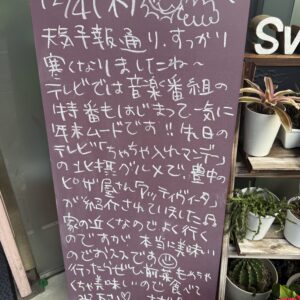 12/4(木)
天気予報通り、すっかり
寒くなりましたね〜
テレビでは音楽番組の
特番もはじまって一気に
年末ムードです!!先日の
テレビ「ちゃちゃ入れマンデー」
の北摂グルメで、豊中の
ピザ屋さん「ルッティヴィータ」
が紹介されていました♫
家の近くなのでよく行く
のですが本当に美味い
のでおススメです☺
行ったらぜひ前菜もめちゃ
くちゃ美味しいので食べて
みて
Sw